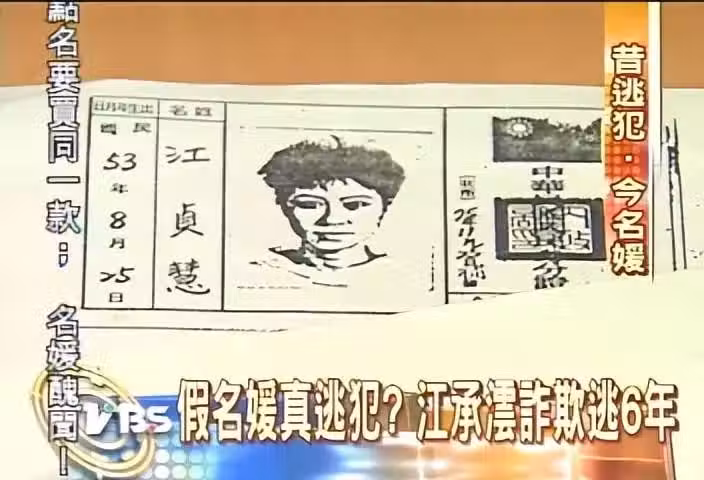 點名要買同一款；
名媛醜聞！
昔逃犯．今名媛
日月年生出
名姓
國民
53
年
8
月
25
日
江
貞
慧
中華
假名媛真逃犯？江承澐詐欺逃6年
TVBS